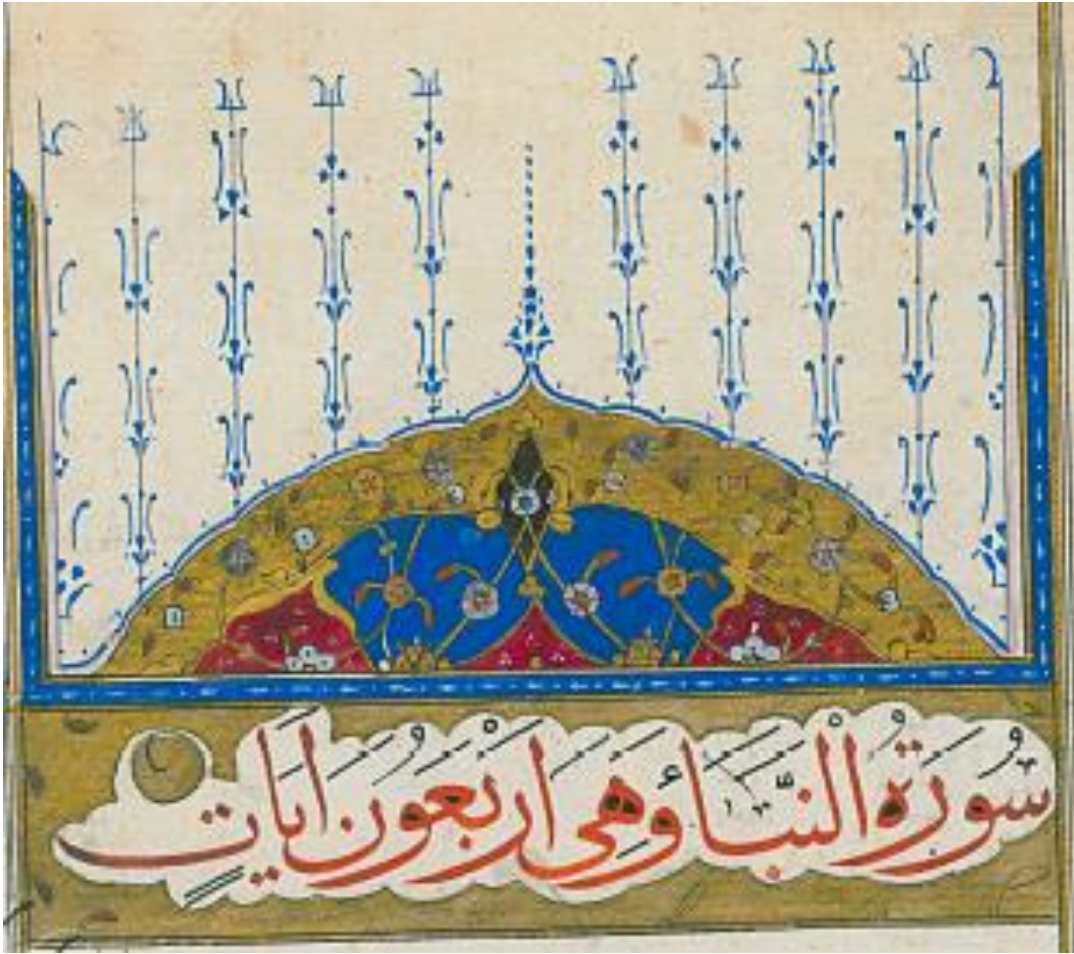 سُورَةُ النَّبَاءِ وَهِىَ اَرْبَعُونَ اٰيَاتٍ